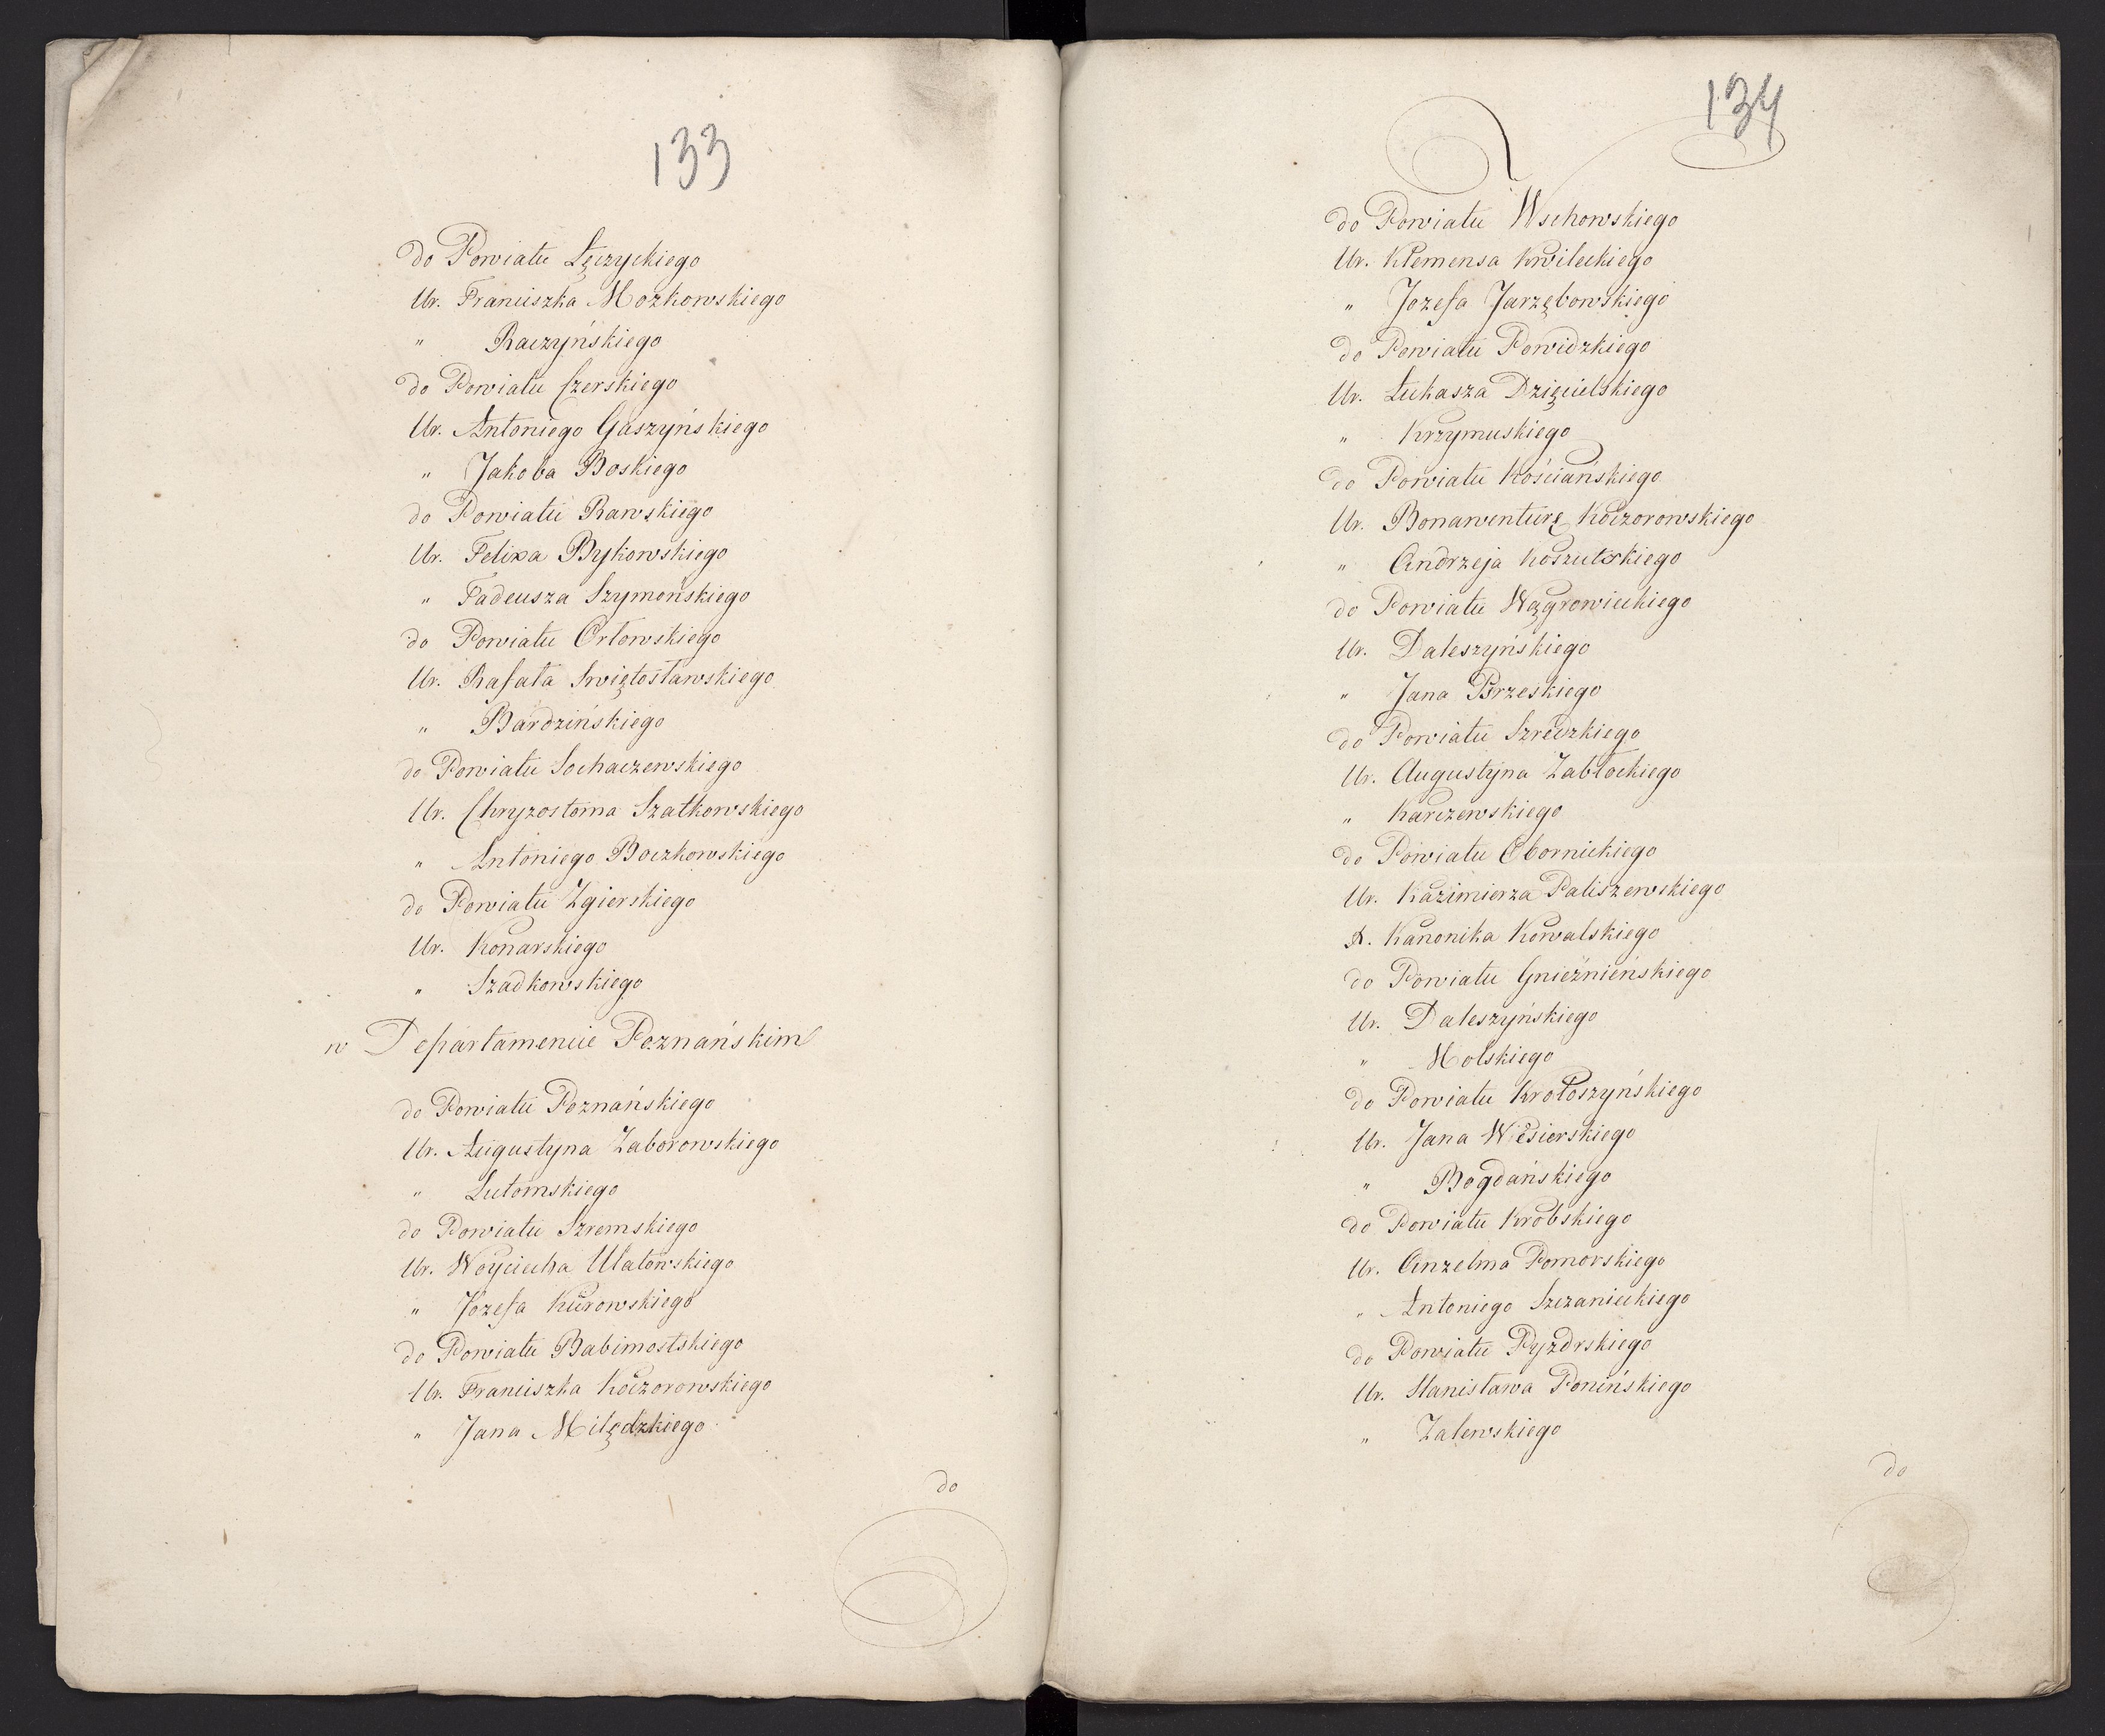 133
do Powiatu Łęczyckiego
Ur. Franciszka Mozkowskiego
" Raczyńskiego
do Powiatu Czerskiego
Ur. Antoniego Gaszyńskiego
" Jakóba Boskiego
do Powiatu Rawskiego
Ur. Felixa Bykowskiego
" Tadeusza Szymońskiego
do Powiatu Orłowskiego
Ur. Rafała Swiętosławskiego
" Bardzińskiego
do Powiatu Sochaczewskiego
Ur. Chryzostoma Szatkowskiego
" Antoniego Boczkowskiego
do Powiatu Zgierskiego
Ur. Konarskiego
" Szadkowskiego
w Departamencie Poznańskim
do Powiatu Poznańskiego
Ur. Augustyna Zaborowskiego
" Lutomskiego
do Powiatu Szremskiego
Ur. Woyciecha Ulatowskiego
" Jozefa Kurowskiego
do Powiatu Babimostskiego
Ur. Franciszka Koczorowskiego
" Jana Milędzkiego
do
134
do Powiatu Wschowskiego
Ur. Klemensa Kwileckiego
" Jozefa Jarzębowskiego
do Powiatu Powidzkiego
Ur. Łukasza Dzięcielskiego
" Krzymuskiego
do Powiatu Kościańskiego
Ur. Bonawenturę Koczorowskiego
" Andrzeja Koszutskiego
do Powiatu Wągrowieckiego
Ur. Daleszyńskiego
" Jana Brzeskiego
do Powiatu Szredzkiego
Ur. Augustyna Zabłockiego
" Karczewskiego
do Powiatu Obornickiego
Ur. Kazimierza Paliszewskiego
X. Kanonika Kowalskiego
do Powiatu Gnieźnieńskiego
Ur. Daleszyńskiego
" Molskiego
do Powiatu Krotoszyńskiego
Ur. Jana Wesierskiego
" Bogdańskiego
do Powiatu Krobskiego
Ur. Anzelma Pomorskiego
" Antoniego Szczanieckiego
do Powiatu Pyzdrskiego
Ur. Stanisława Ponińskiego
" Zalewskiego
do